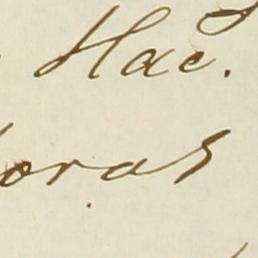 Hac.
oras